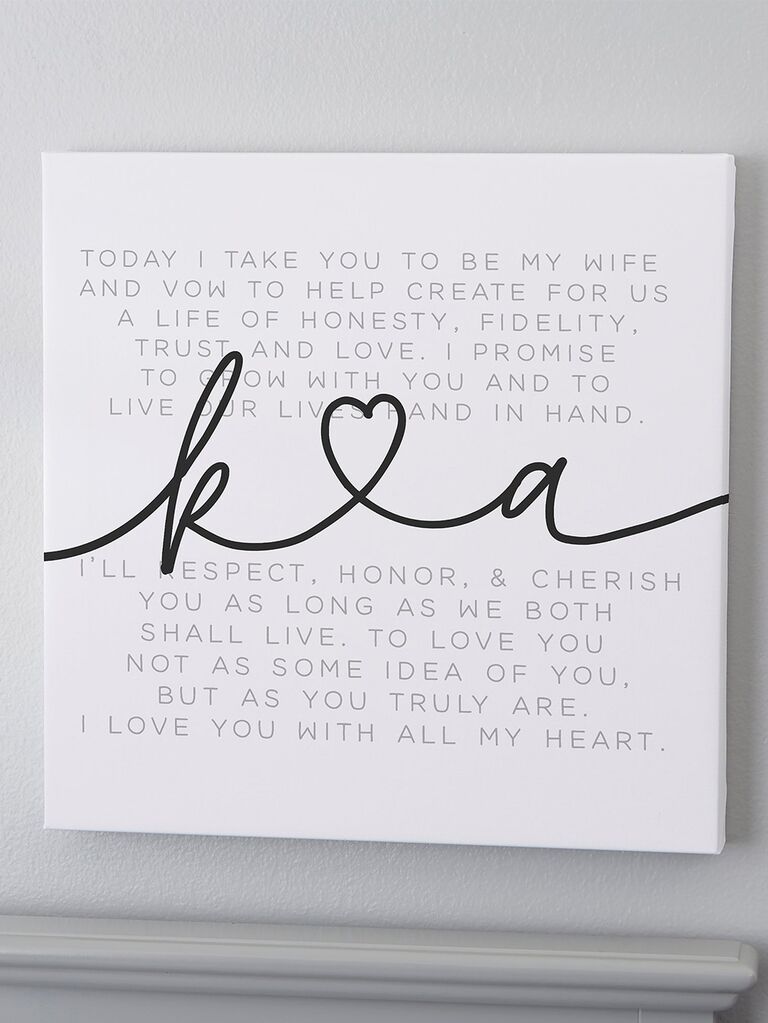 TODAY I TAKE YOU TO BE MY WIFE
AND VOW TO HELP CREATE FOR US
A LIFE OF HONESTY, FIDELITY,
TRUST AND LOVE. I PROMISE
TO GROW WITH YOU AND TO
LIVE OUR LIVES HAND IN HAND.
k a
I'LL RESPECT, HONOR, & CHERISH
YOU AS LONG AS WE BOTH
SHALL LIVE. TO LOVE YOU
NOT AS SOME IDEA OF YOU,
BUT AS YOU TRULY ARE.
I LOVE YOU WITH ALL MY HEART.